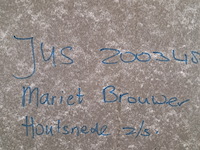 JUS 200348
Mariet Brouwer
Houtsnede z/s.